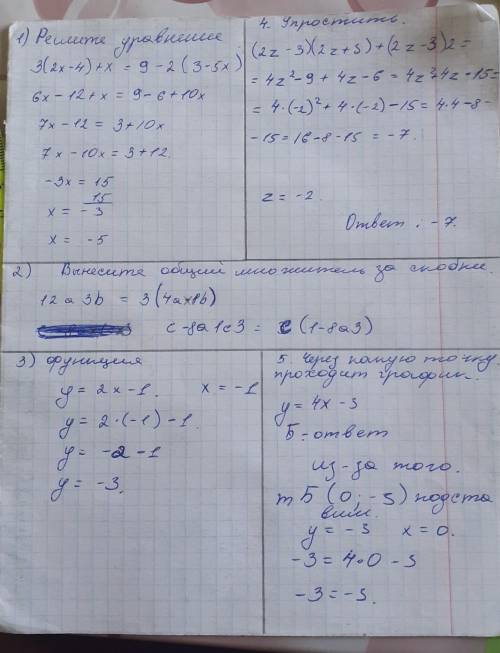 1) Решите уравнение
3(2x-4)+x = 9-2(3-5x)
6x-12+x = 9-6+10x
7x-12 = 3+10x
7x-10x = 3+12
-3x = 15
x = -15/3
x = -5
4. Упростить.
(2z-3)(2z+3)+(2z-3)2=
=4z²-9+4z-6=4z²+4z-15=
=4·(-2)²+4·(-2)-15=4·4-8-
-15=16-8-15=-7.
z=-2.
Ответ: -7.
2) Вынесите общий множитель за скобки.
12a3b = 3(4a×1b)
c-8a1c3 = c(1-8a3)
3) функция
y = 2x-1. x = -1
y = 2·(-1)-1.
y = -2-1
y = -3.
5. Через какую точку
проходит график.
y = 4x-3
Б-ответ
Из-за того.
т Б (0;-3) подста
вим.
y = -3 x = 0.
-3 = 4·0-3
-3=-3.